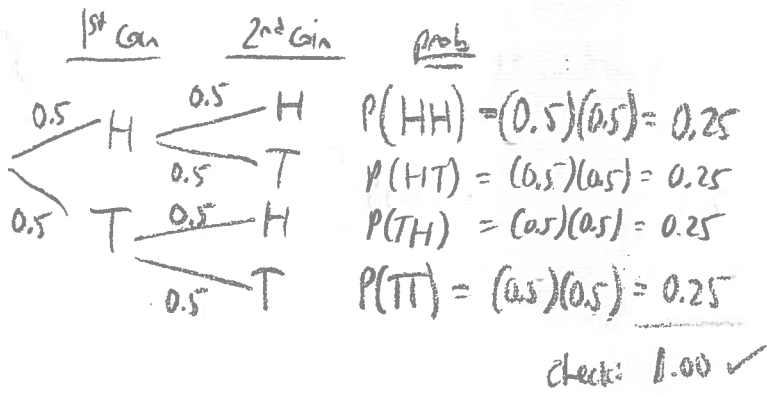 1st Coin 2nd Coin prob
0.5 H 0.5 H P(HH) = (0.5)(0.5) = 0.25
0.5 T P(HT) = (0.5)(0.5) = 0.25
0.5 T 0.5 H P(TH) = (0.5)(0.5) = 0.25
0.5 T P(TT) = (0.5)(0.5) = 0.25
check: 1.00 ✓